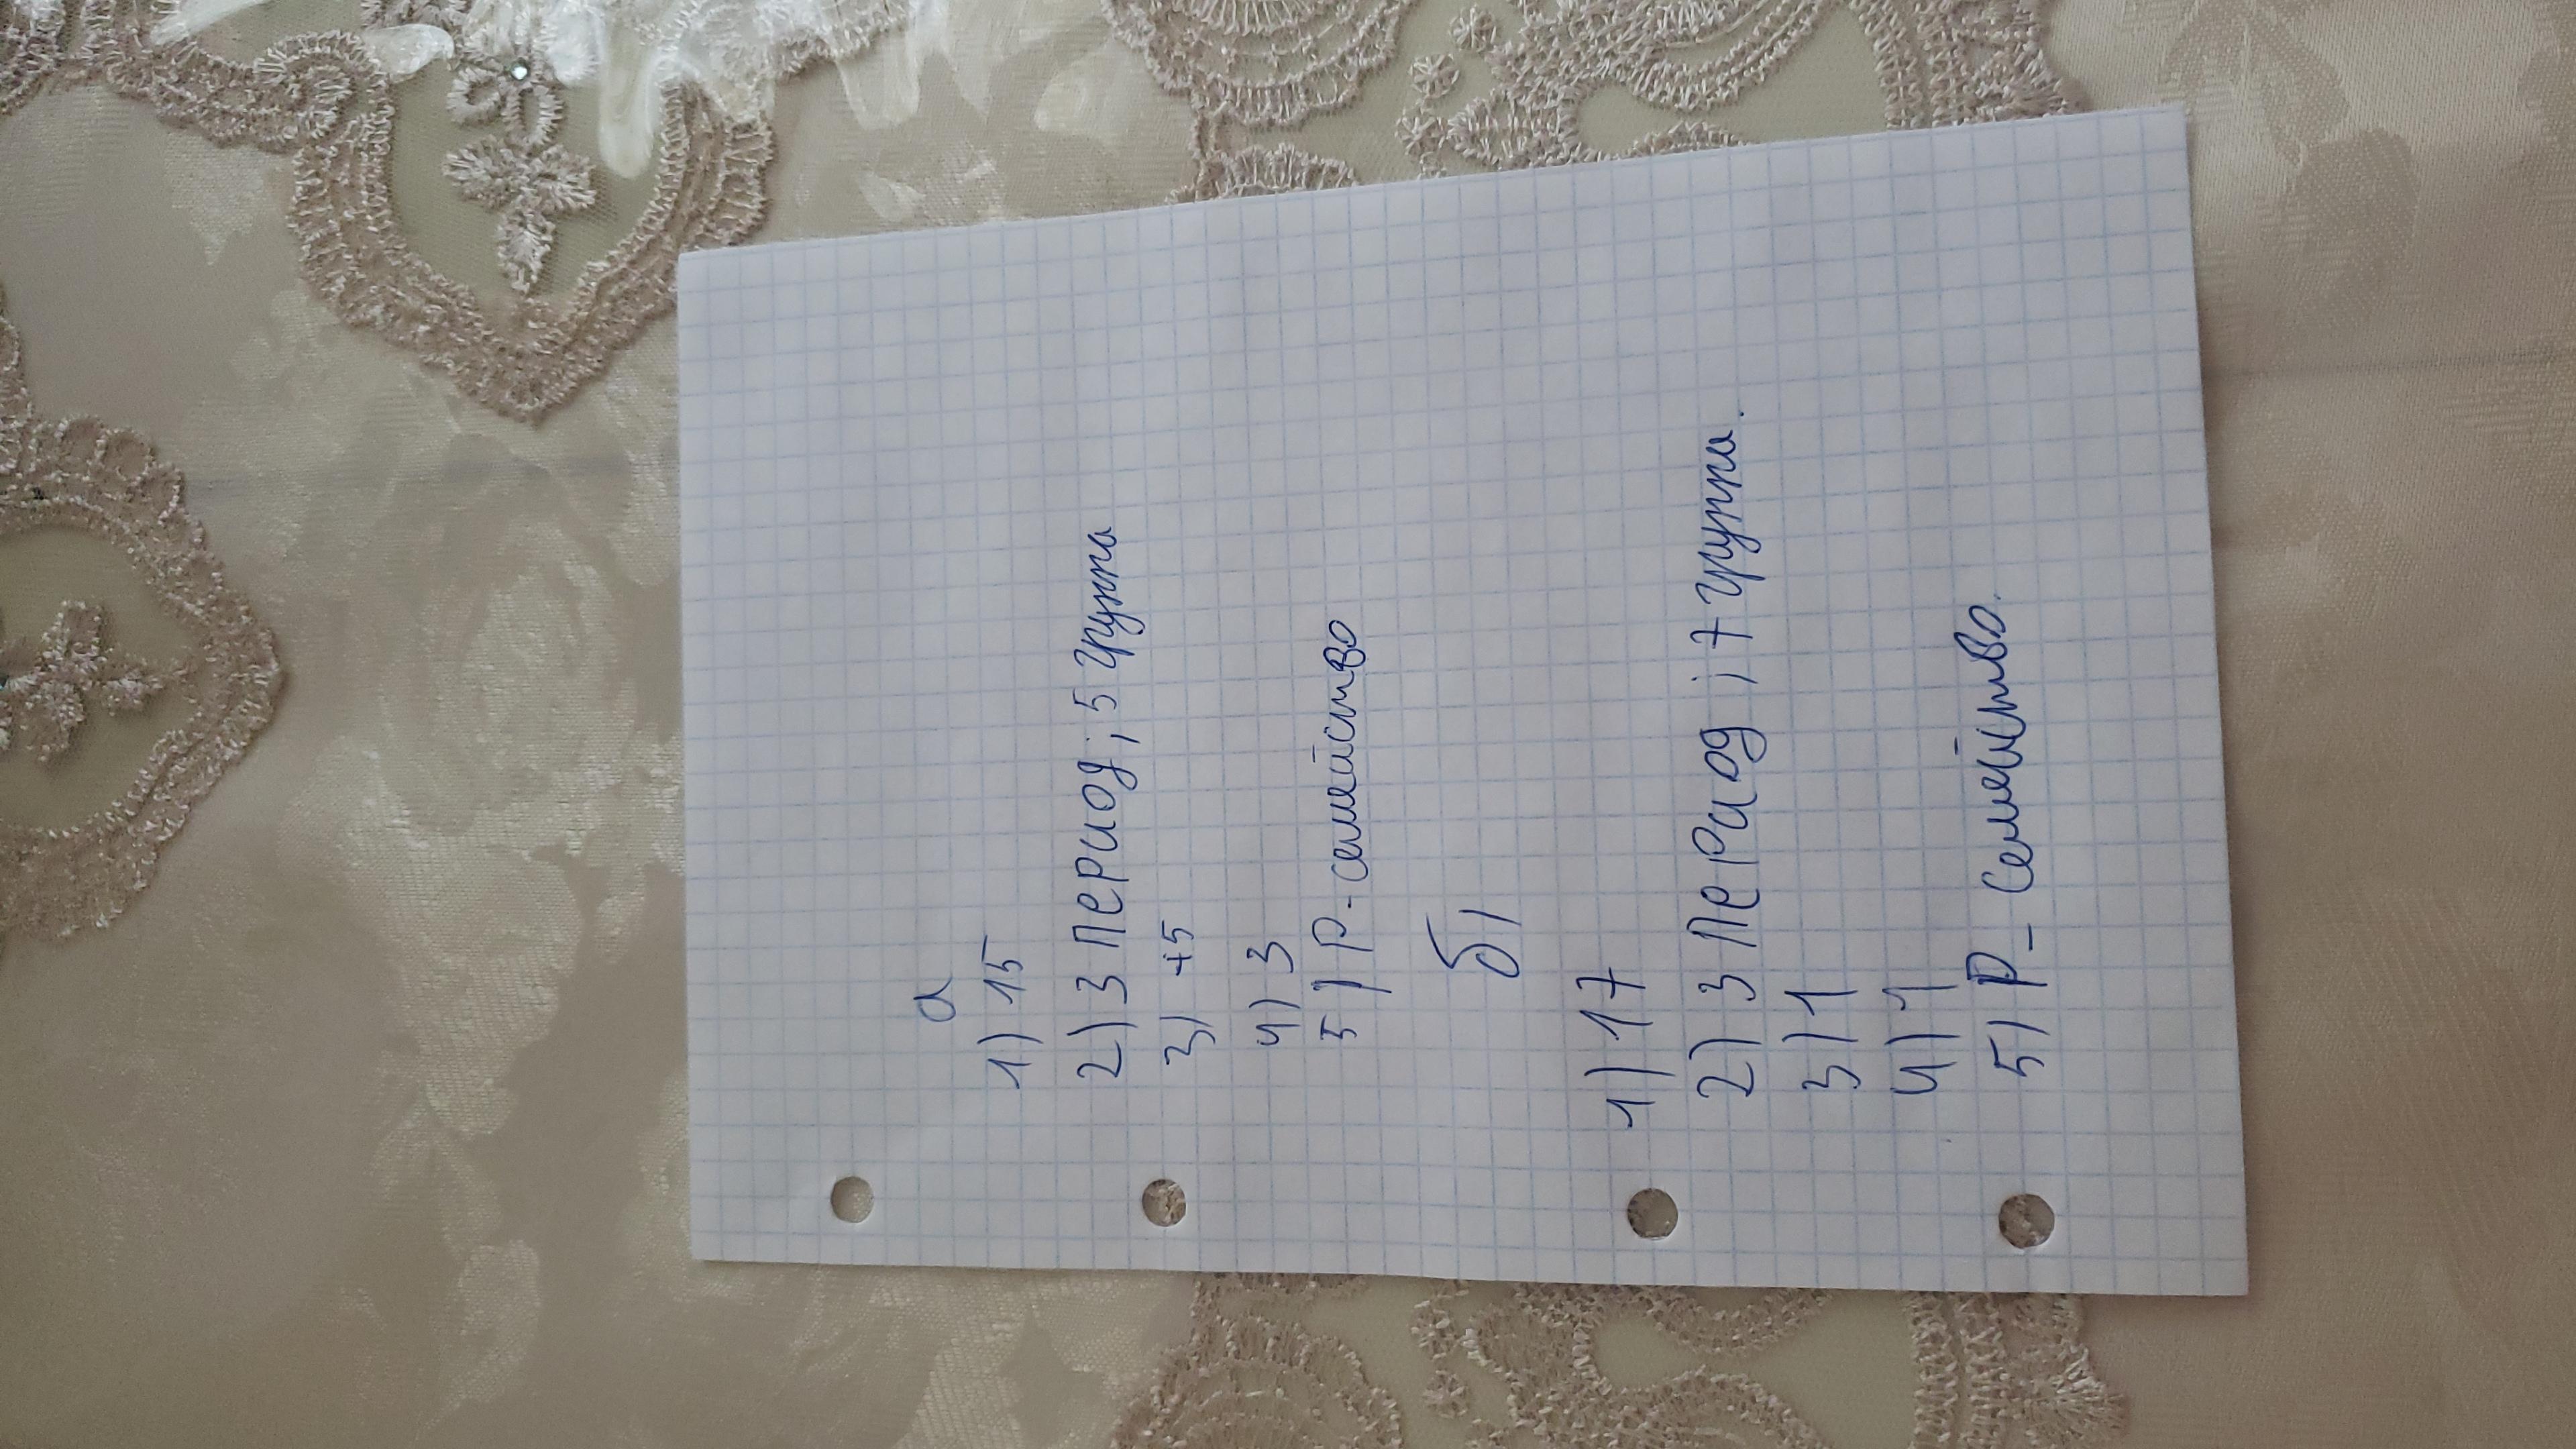 а
1) 15
2) 3 Период; 5 группа
3) +5
4) 3
5) P-семейство
б)
1) 17
2) 3 Период; 7 группа.
3) 1
4) 1
5) P-Семейство.